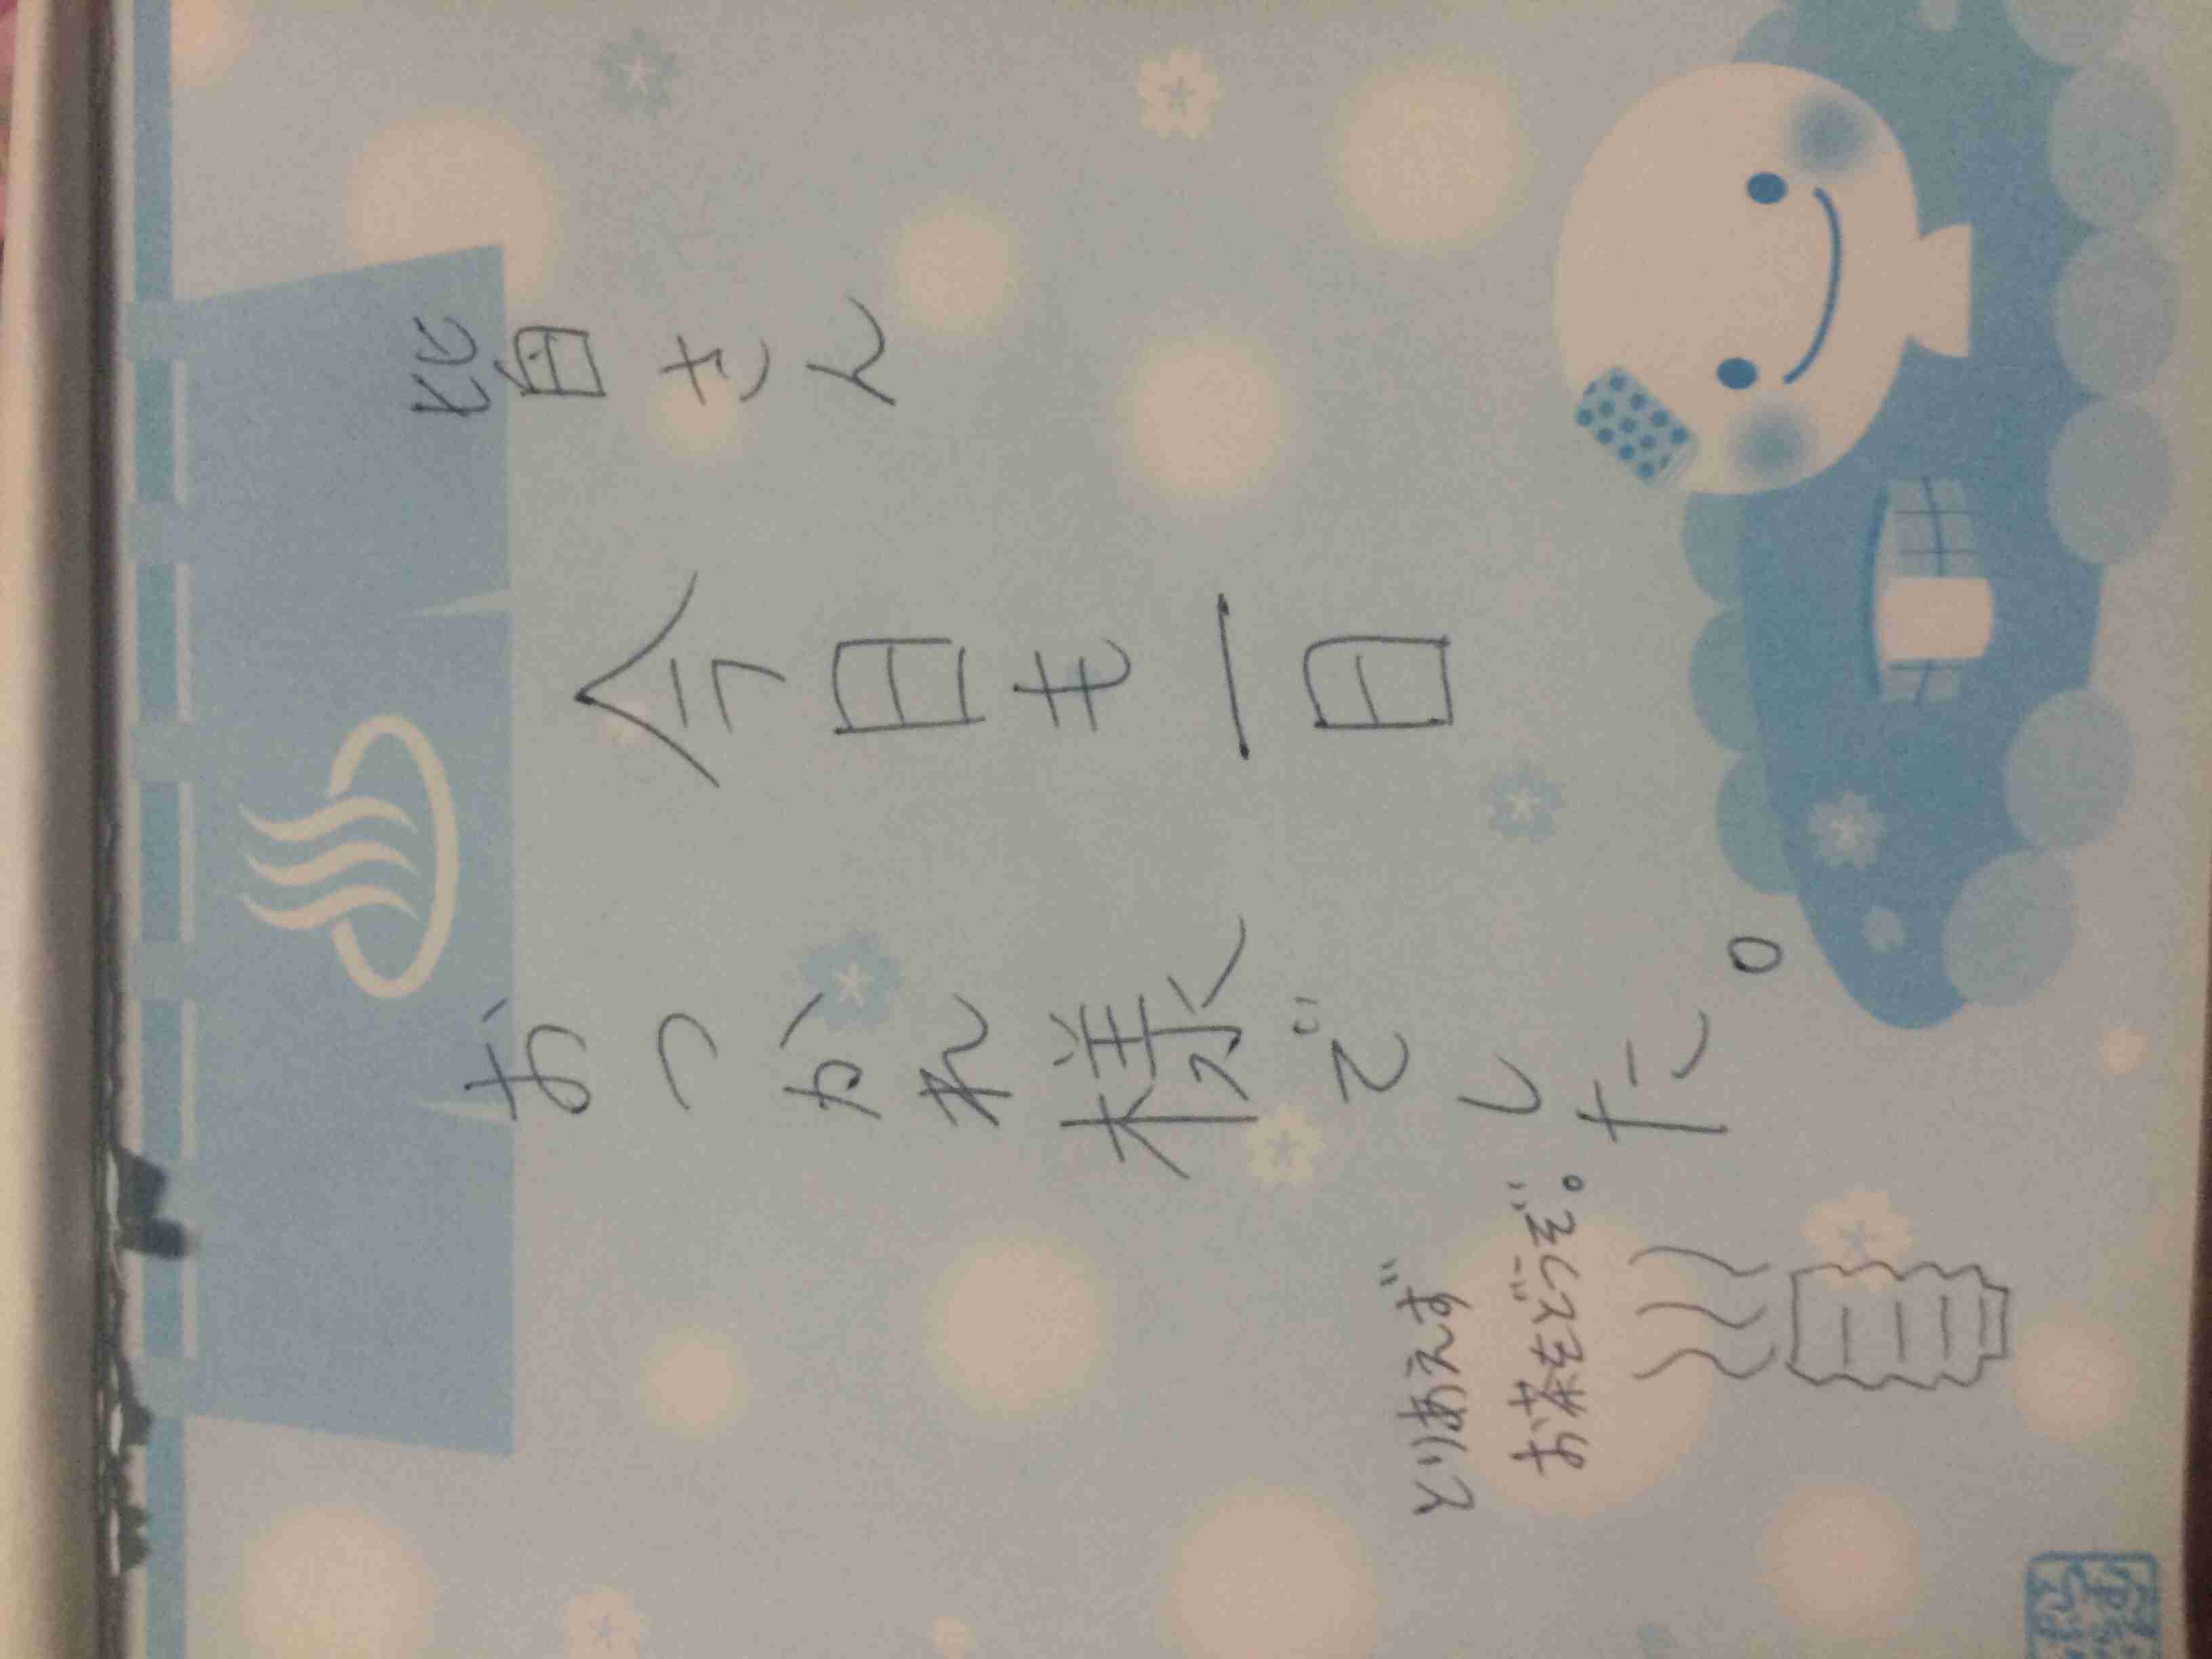 皆さん
今日も一日
おつかれ様でした。
とりあえず
お茶をどうぞ。